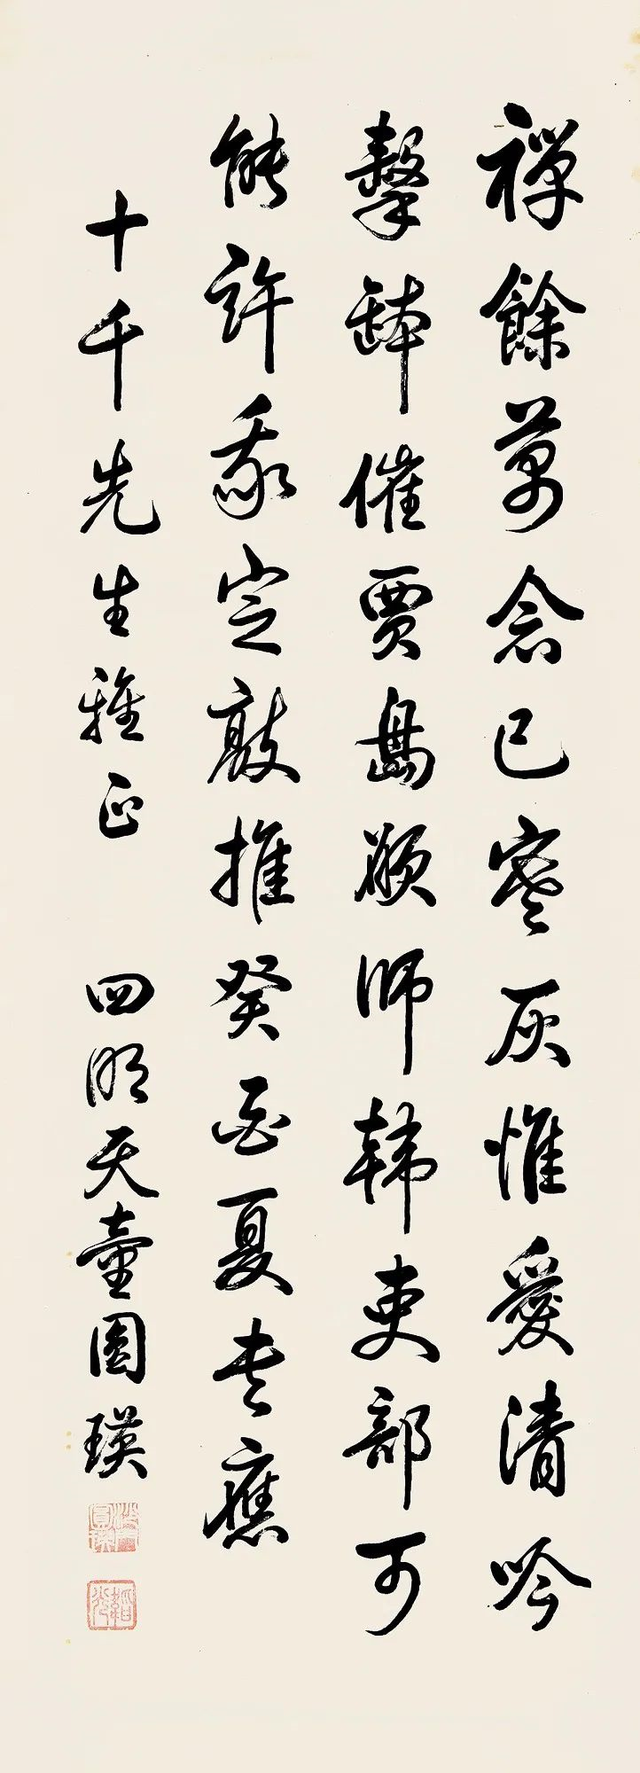 禪餘萬念已寒灰惟愛清吟
擊缽催賈島願師韓吏部可
能許我定敲推癸酉夏書應
十千先生雅正 四明天童圓瑛